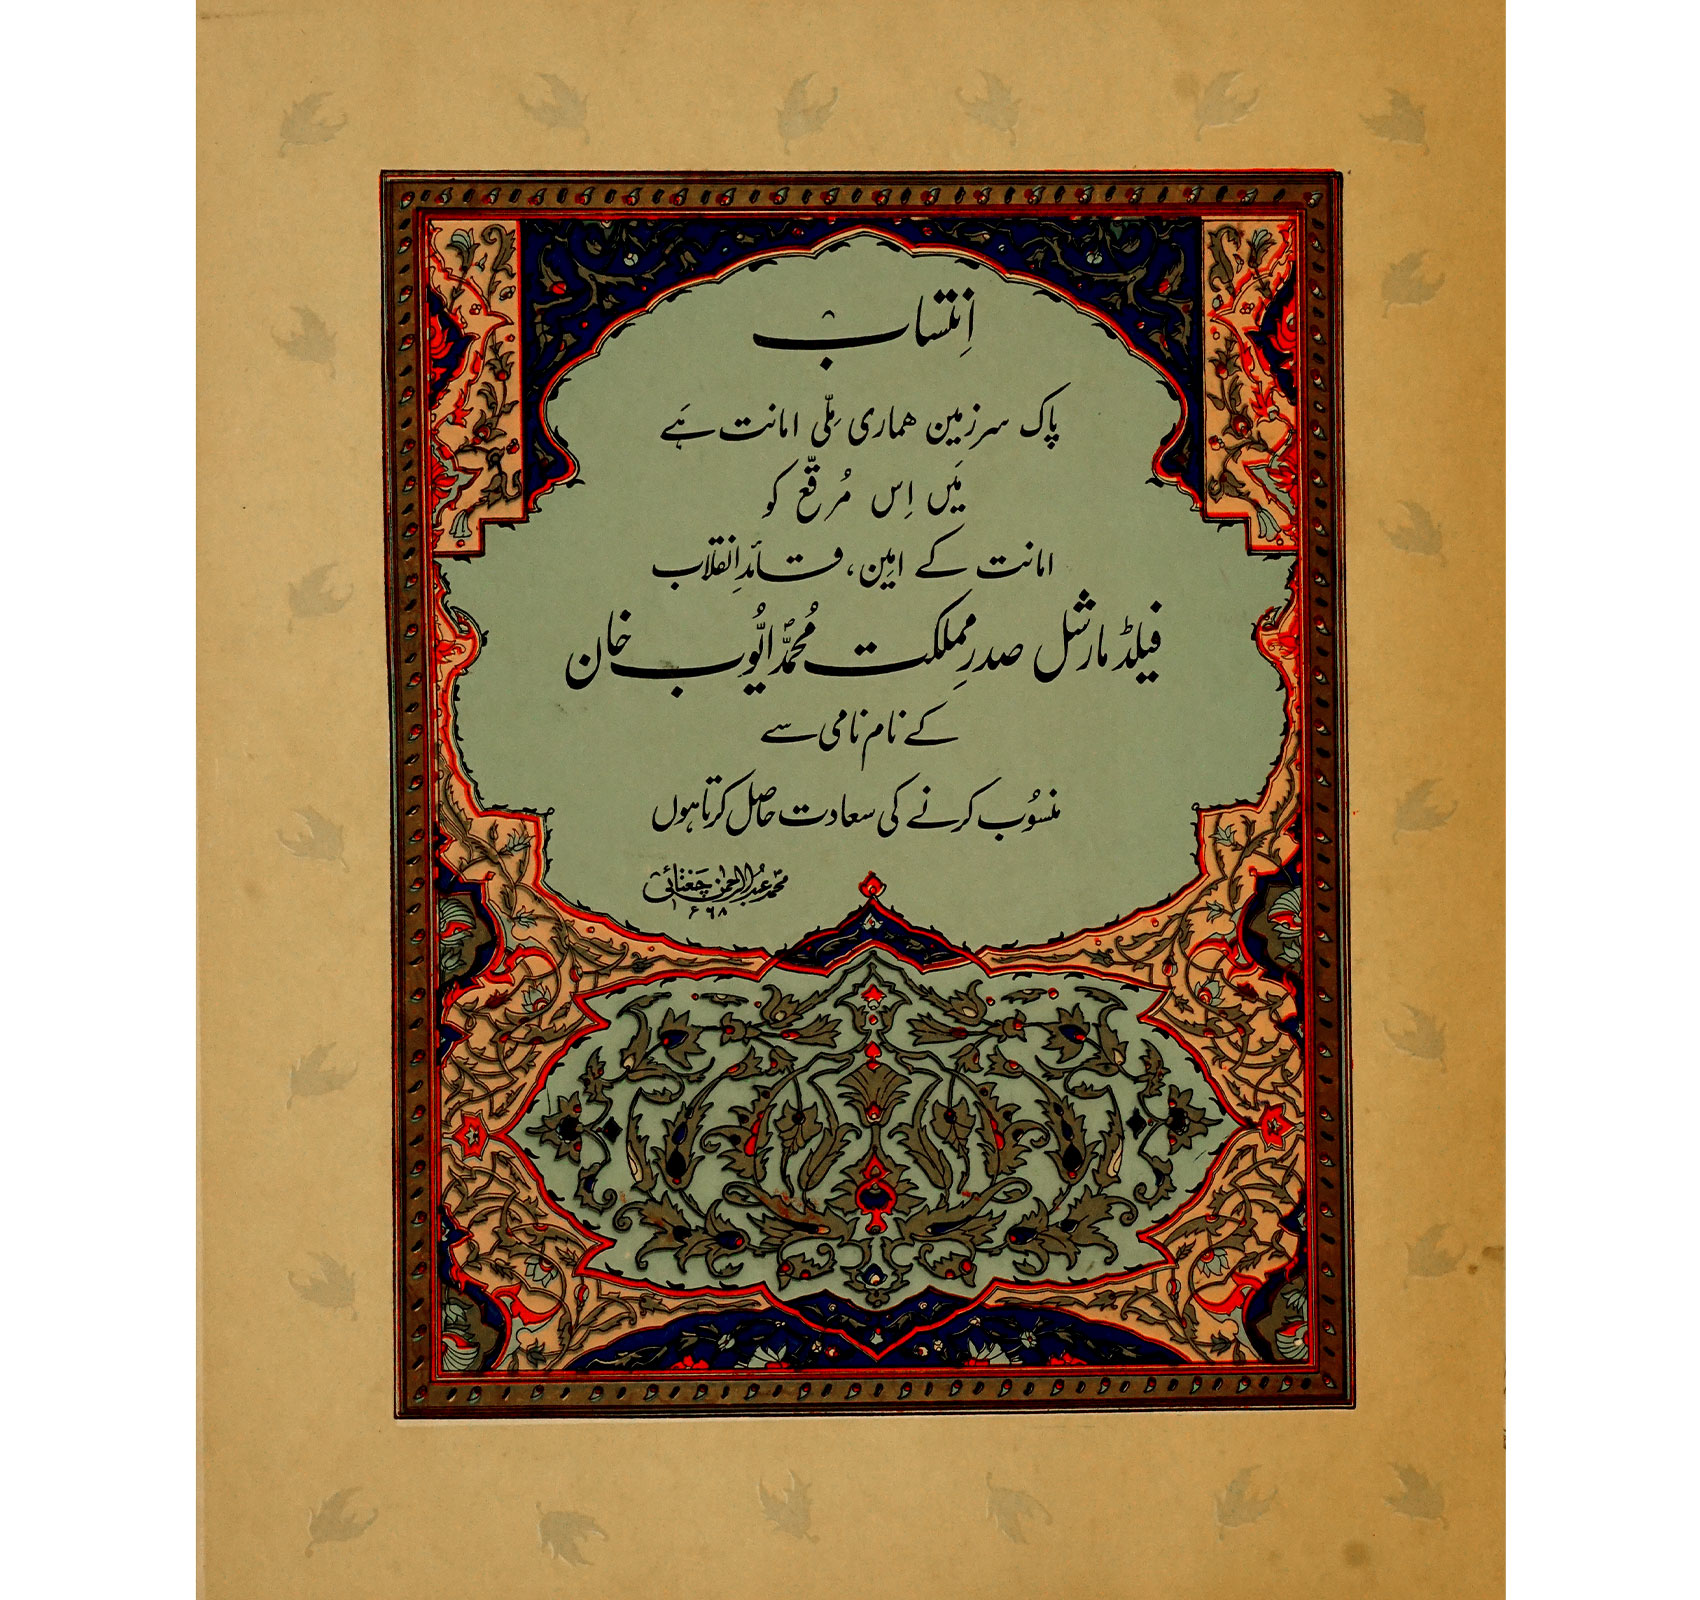 اِنتساب
پاک سرزمین ھماری مِلّی امانت ہَے
مَیں اِس مُرقّع کو
امانت کے امین، قائدِ انقلاب
فیلڈ مارشل صدرِ مملکت مُحمّد ایُّوب خان
کے نام نامی سے
منسُوب کرنے کی سعادت حاصل کرتا ہوں
محمد عبدُالرحمٰن چَغتائی